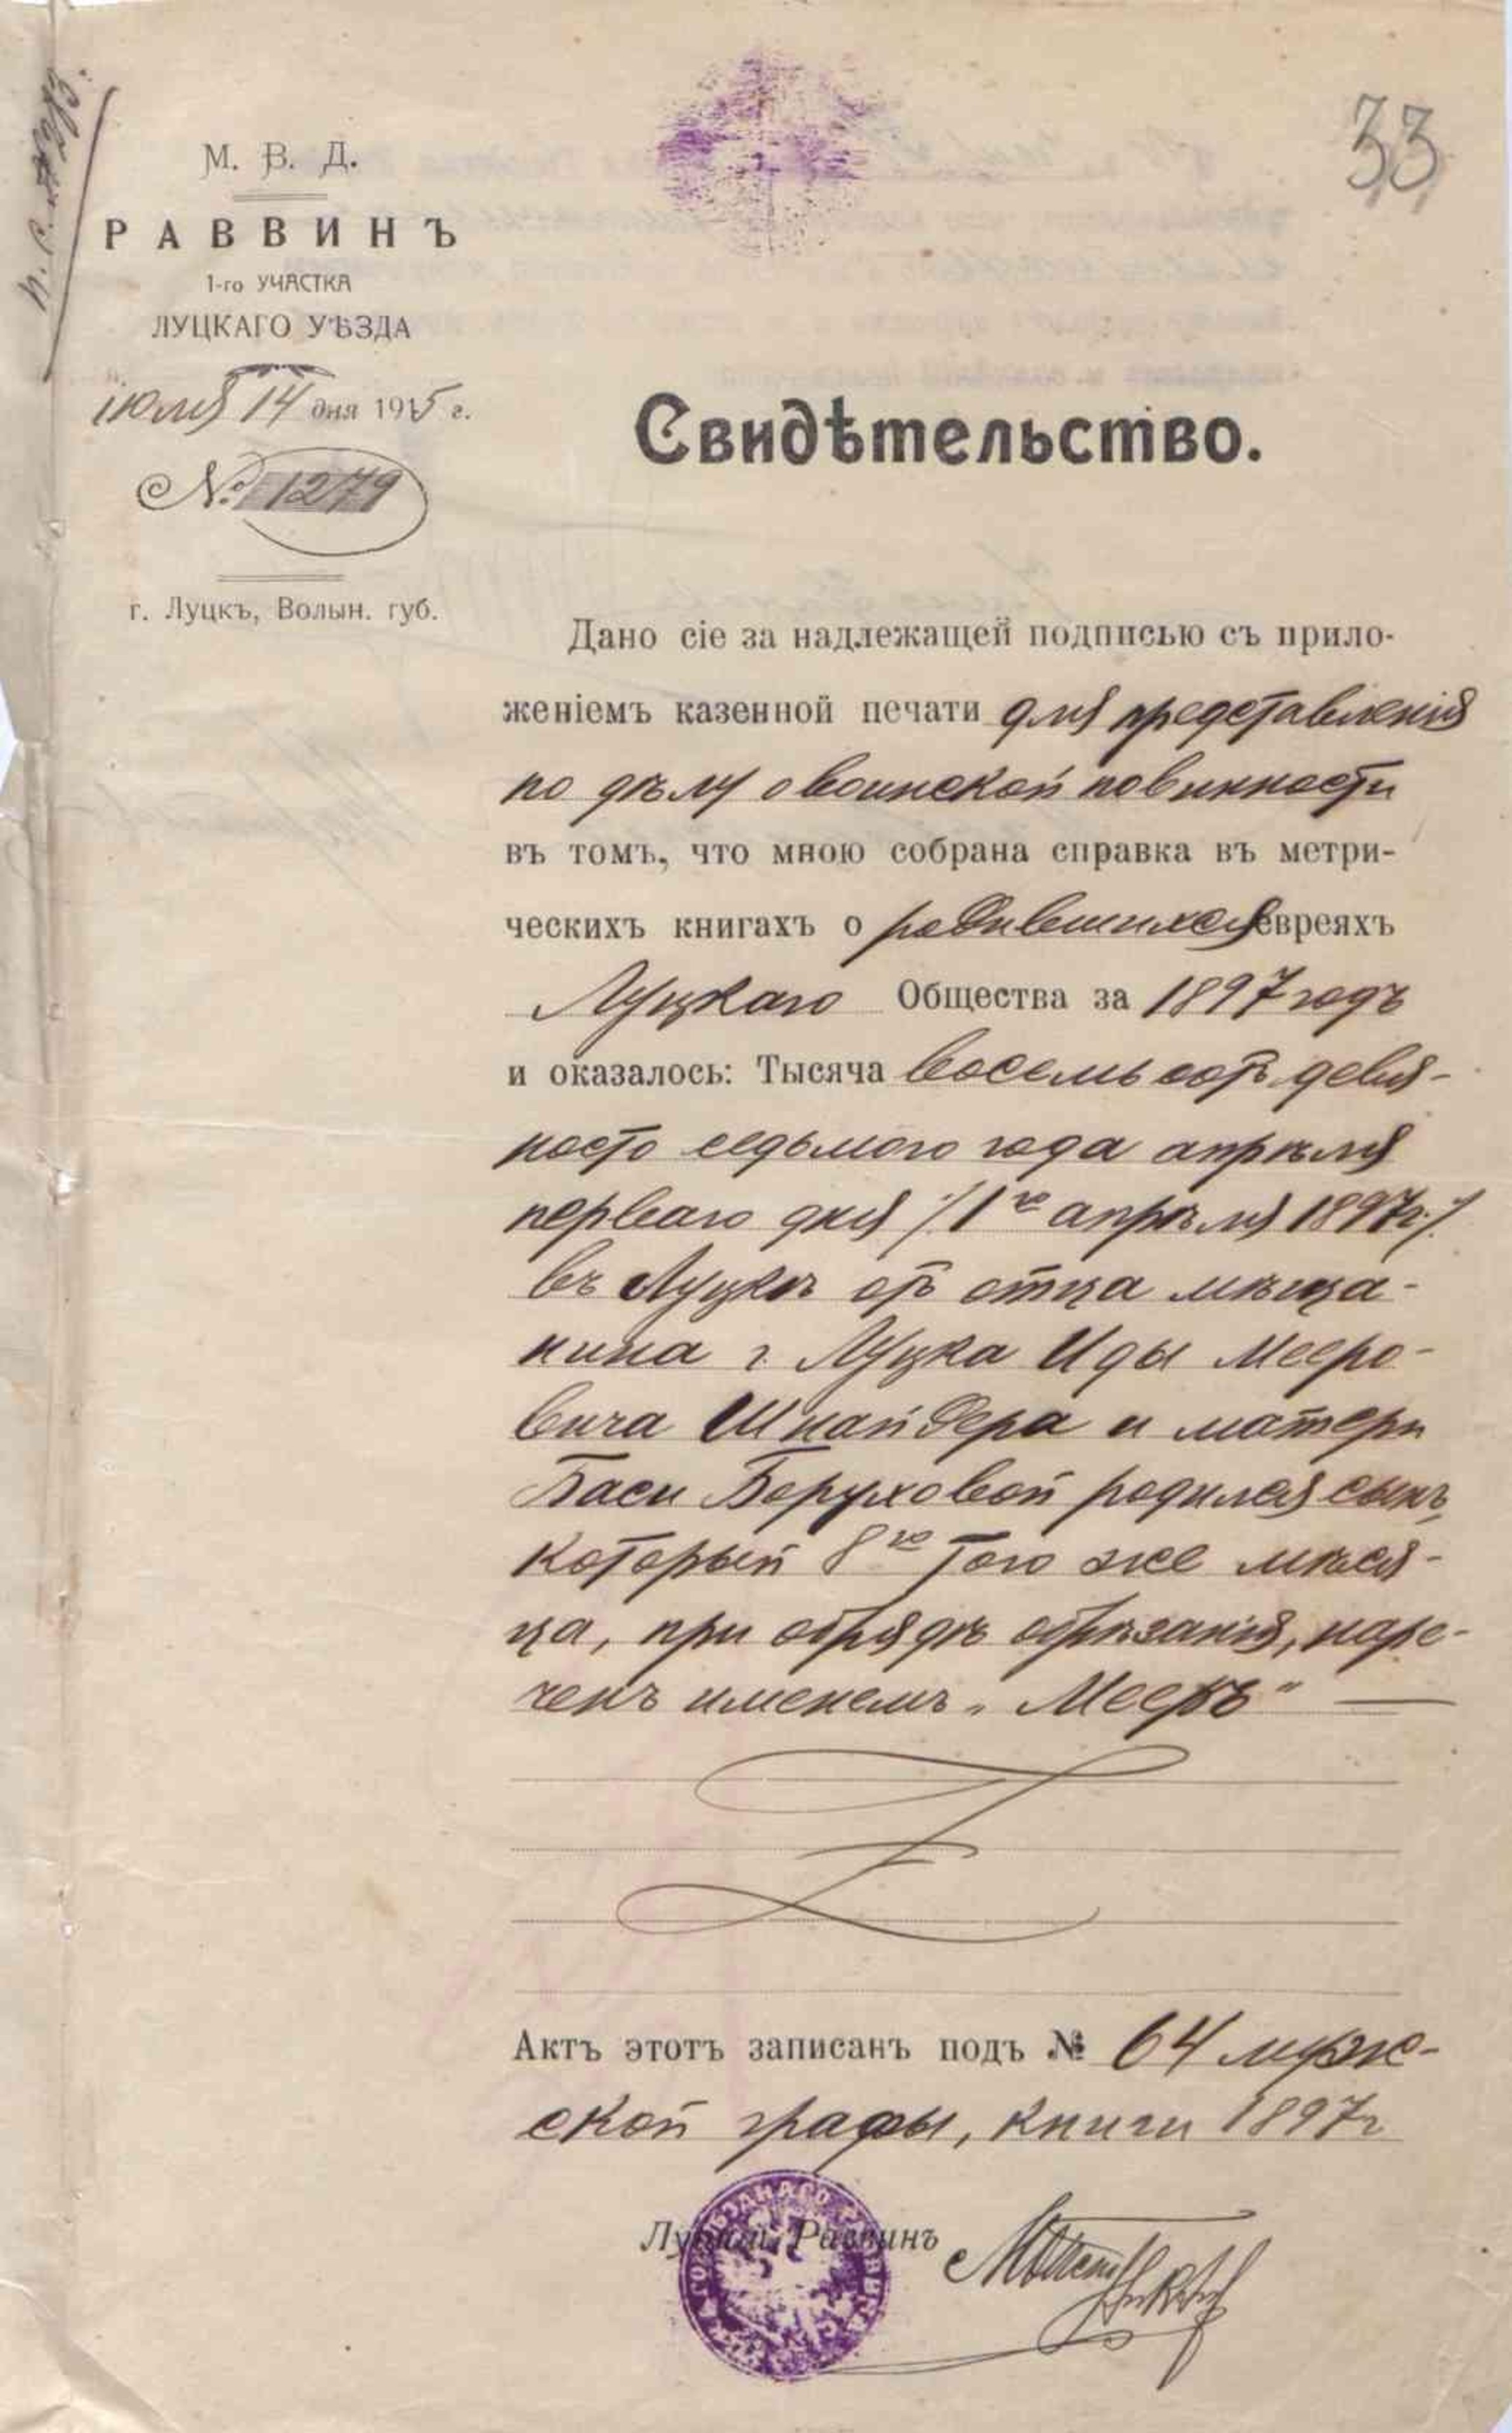 33
М. В. Д.
РАВВИНЪ
1-го УЧАСТКА
ЛУЦКАГО УѢЗДА
іюля 14 дня 1915 г.
№ 1279
г. Луцкъ, Волын. губ.
Свидѣтельство.
Дано сіе за надлежащей подписью съ прило-
женіемъ казенной печати для представленія
по дѣлу о воинской повинности
въ томъ, что мною собрана справка въ метри-
ческихъ книгахъ о родившихся евреяхъ
Луцкаго Общества за 1897 годъ
и оказалось: Тысяча восемьсотъ девя-
носто седьмого года апрѣля
перваго дня /1го апрѣля 1897г./
въ Луцкѣ отъ отца мѣща-
нина г. Луцка Иды Мееро-
вича Шнайдера и матери
Баси Боруховой родился сынъ,
который 8го того же мѣся-
ца, при обрядѣ обрѣзанія, наре-
ченъ именемъ „Мееръ"
Актъ этотъ записанъ подъ № 64 муж-
ской графы, книги 1897г
Луцкій Раввинъ